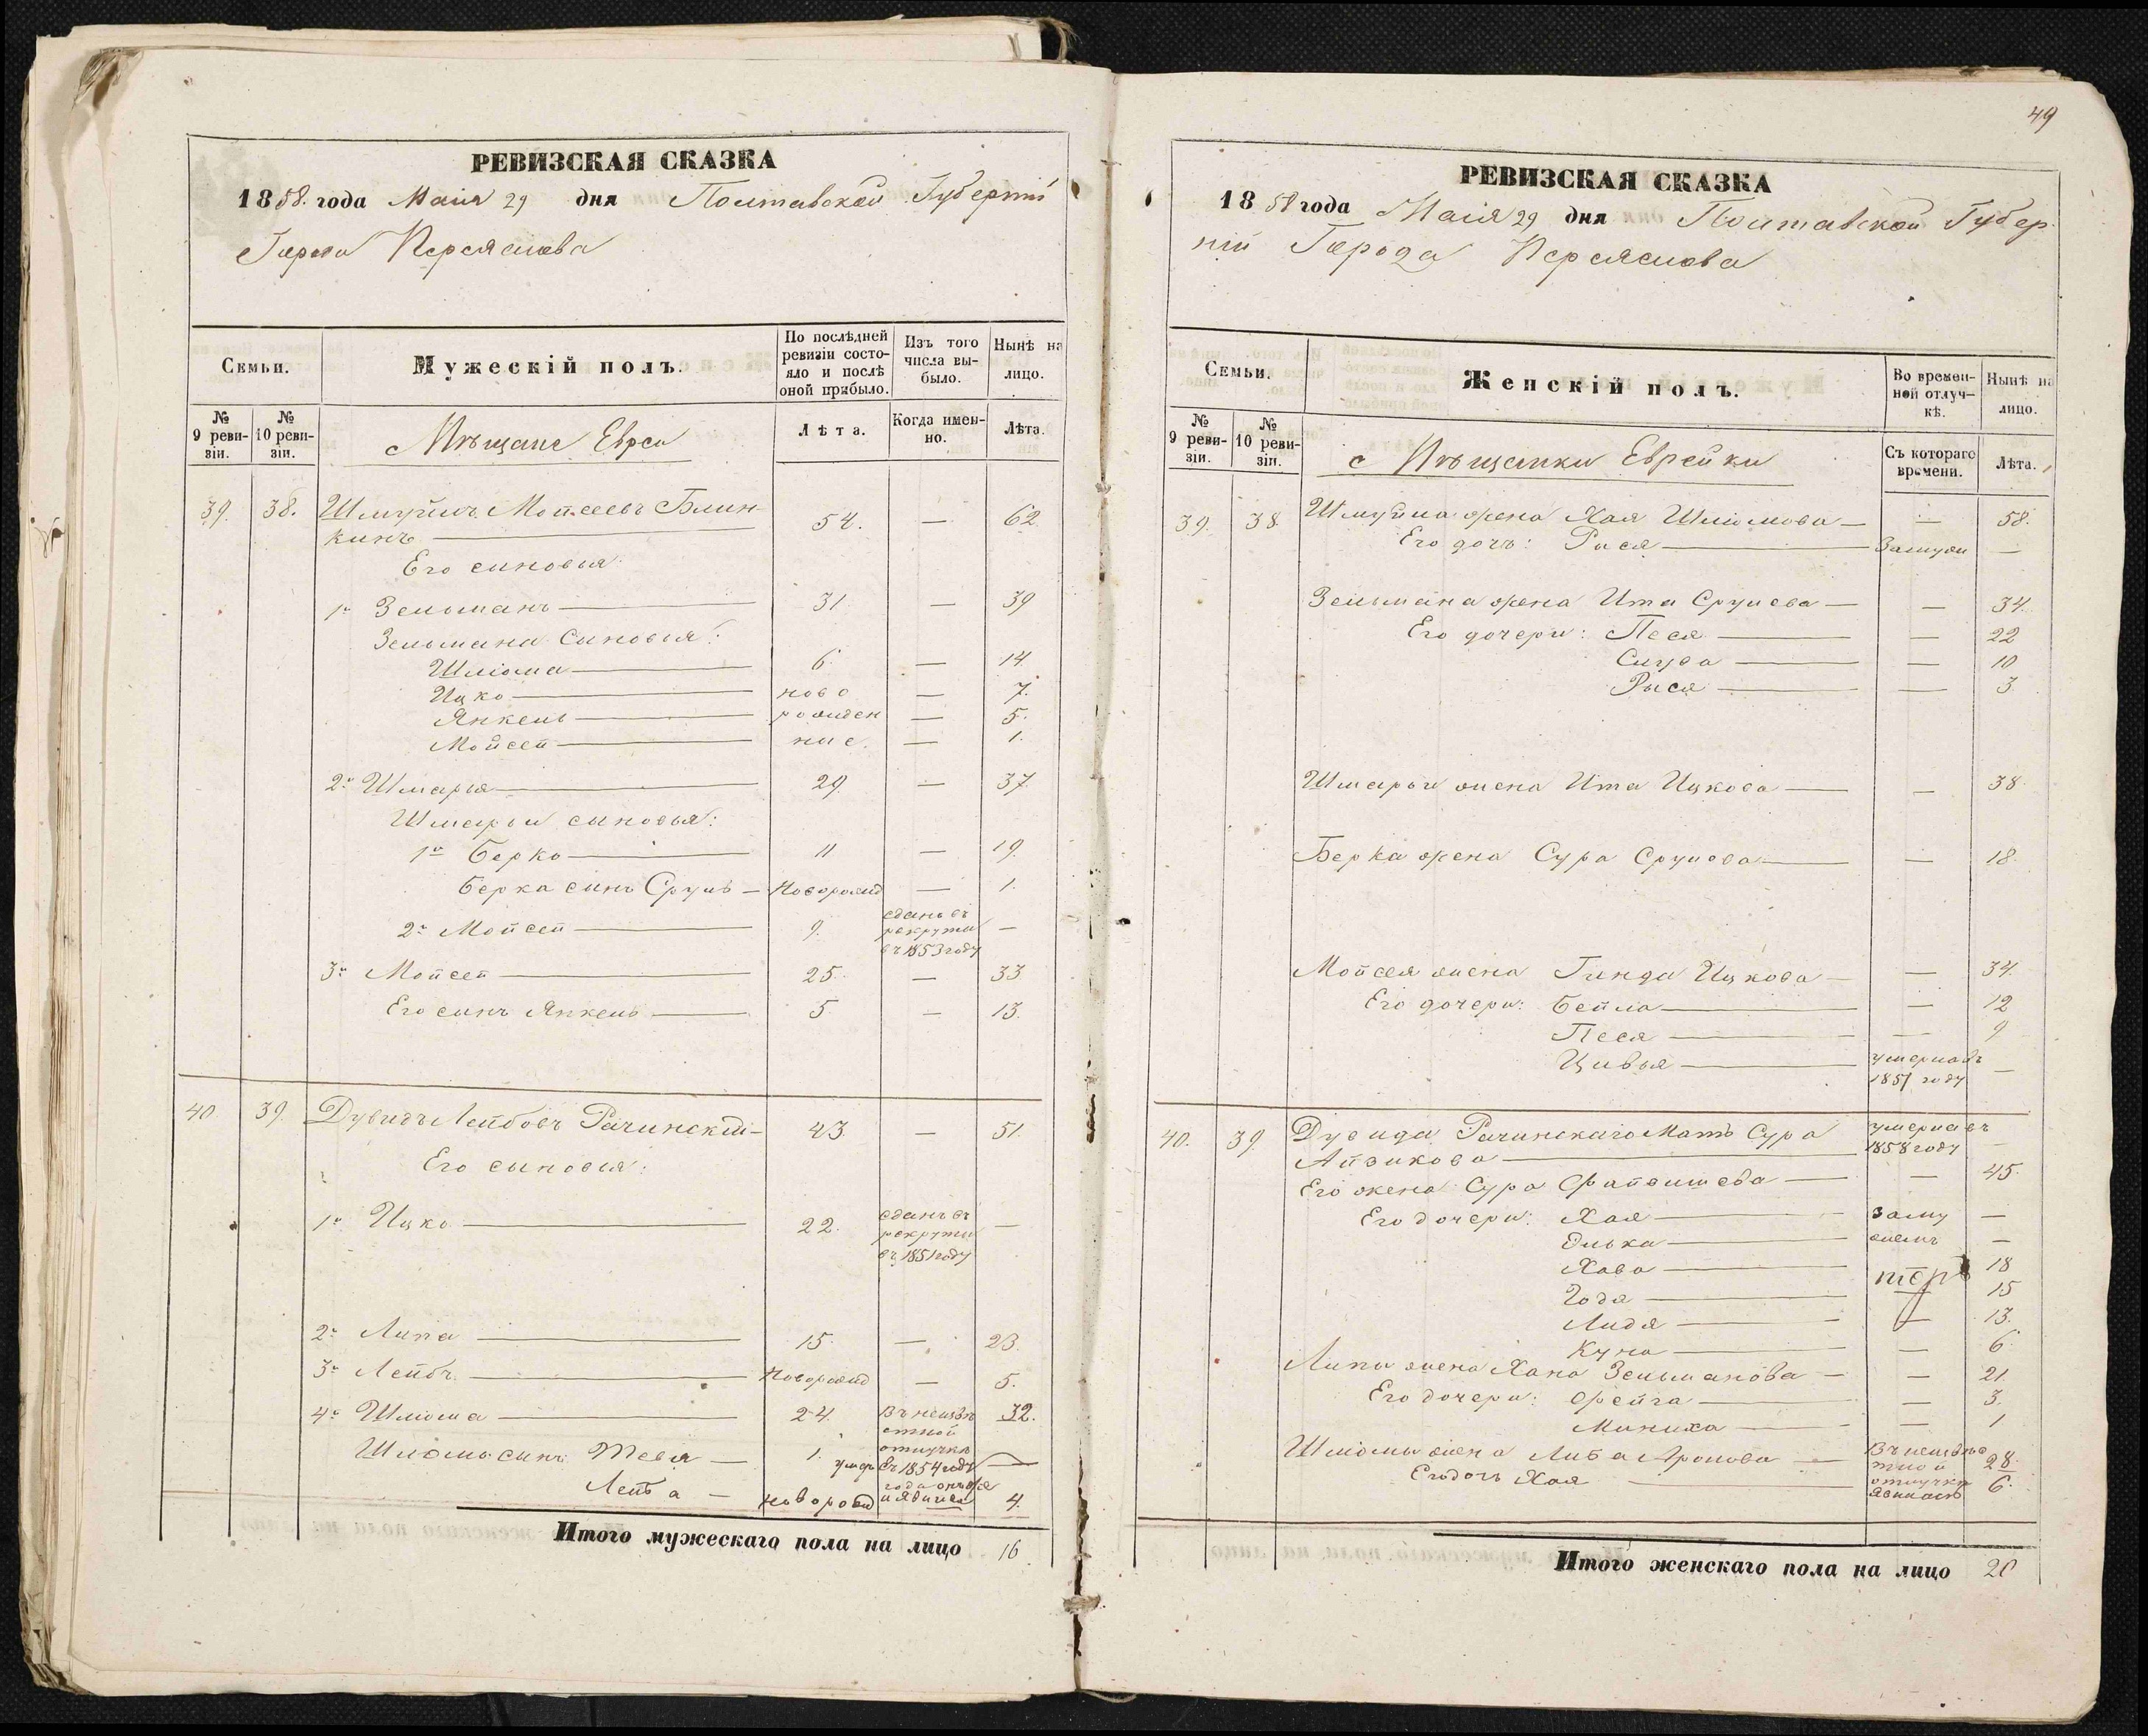 РЕВИЗСКАЯ СКАЗКА
1858. года Маія 29 дня Полтавской Губерніи
Города Переяслова
Семьи.
Мужескій полъ.
По послѣдней ревизіи состояло и послѣ оной прибыло.
Изъ того числа выбыло.
Нынѣ на лицо.
№ 9 ревизіи.
№ 10 ревизіи.
Мѣщане Евреи
Лѣта.
Когда именно.
Лѣта.
39. 38. Шмуйлъ Мойсеевъ Блин-
кинъ 54. — 62
Его синовья:
1й Зельманъ 31 — 39
Зельмана синовья:
Шліома 6. — 14.
Ицко ново — 7.
Янкель рожден — 5.
Мойсей ние. — 1.
2й Шмарья 29. — 37.
Шмарьи синовья:
1й Берко 11 — 19.
Берка синъ Сруль — Новорожд — 1.
2й Мойсей 9. сданъ въ рекруты въ 1853 году —
3й Мойсей 25. — 33
Его синъ Янкель 5. — 13.
40 39. Дувидъ Лейбовъ Рачинскій — 43 — 51.
Его сыновья:
1й Ицко 22. сданъ въ рекруты въ 1851 году —
2й Липа 15. — 23.
3й Лейбъ Новорожд — 5.
4й Шліома 24. Въ неизвѣстной отлучкѣ 32.
Шліомы синъ Тевя — 1. умеръ въ 1854 году —
Лейба — новорожд 4.
Итого мужескаго пола на лицо 16
49
РЕВИЗСКАЯ СКАЗКА
1858 года Маія 29 дня Полтавской Губер-
ніи Города Переяслова
Семьи.
Женскій полъ.
Во временной отлучкѣ.
Нынѣ на лицо.
№ 9 ревизіи.
№ 10 ревизіи.
Мѣщанки Еврейки
Съ котораго времени.
Лѣта.
39. 38. Шмуйла жена Хая Шліомова — — 58.
Его дочь: Рися Замужи —
Зельмана жена Ита Срулева — — 34.
Его дочери: Песя — 22
— 10
Рыся — 3
Шмарьи жена Ита Ицкова — 38.
Берка жена Сура Срулева — 18
Мойсея жена Гинда Ицкова — — 34.
Его дочери: Бейла — 12
Песя — 9
Цивья умерла въ 1851 году —
40. 39. Дувида Рачинскаго Мать Сура
Айзикова умерла въ 1858 году —
Его жена Сура Файвишева — 45.
Его дочери: Хая заму —
Элька жемъ —
Хава 18
Годя — 15
Лидя — 13.
Куна — 6.
Липы жена Хана Зельманова — — 21.
Его дочери: Фейга — 3.
Миниха — 1
Шліомы жена Либа Аронова — Въ неизвѣстной отлучкѣ 28.
Его дочь Хая явилась 6.
Итого женскаго пола на лицо 20